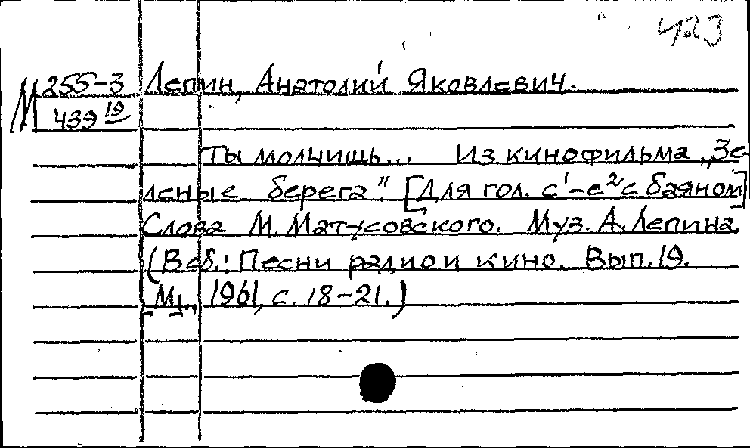 423
М 255-3 Лепин, Анатолий Яковлевич.
439 19
Ты молчишь... Из кинофильма „Зе-
леные берега". [Для гол. c¹-e² с баяном]
Слова М. Матусовского. Муз. А. Лепина.
(В сб.: Песни радио и кино. Вып. 19.
[М.], 1961, с. 18-21.)